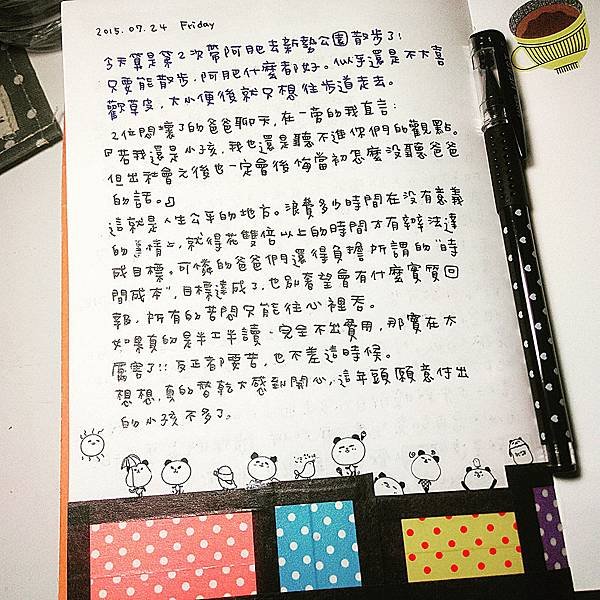 2015.07.24 Friday
今天算是第2次帶阿肥去新勢公園散步了!
只要能散步,阿肥什麼都好。似乎還是不太喜
歡草皮,大小便後就只想往步道走去。
2位悶壞了的爸爸聊天,在一旁的我直言:
『若我還是小孩,我也還是聽不進你們的觀點。
但出社會之後也一定會後悔當初怎麼沒聽爸爸
的話。』
這就是人生公平的地方。浪費多少時間在沒有意義
的事情上,就得花雙倍以上的時間才有辦法達
成目標。可憐的爸爸們還得負擔所謂的"時
間成本",目標達成了,也別奢望會有什麼實質回
報,所有的苦悶只能往心裡吞。
如果真的是半工半讀、完全不出費用,那實在太
厲害了!!反正都要苦,也不差這時候。
想想,真的替乾大感到開心,這年頭願意付出
的小孩不多了。